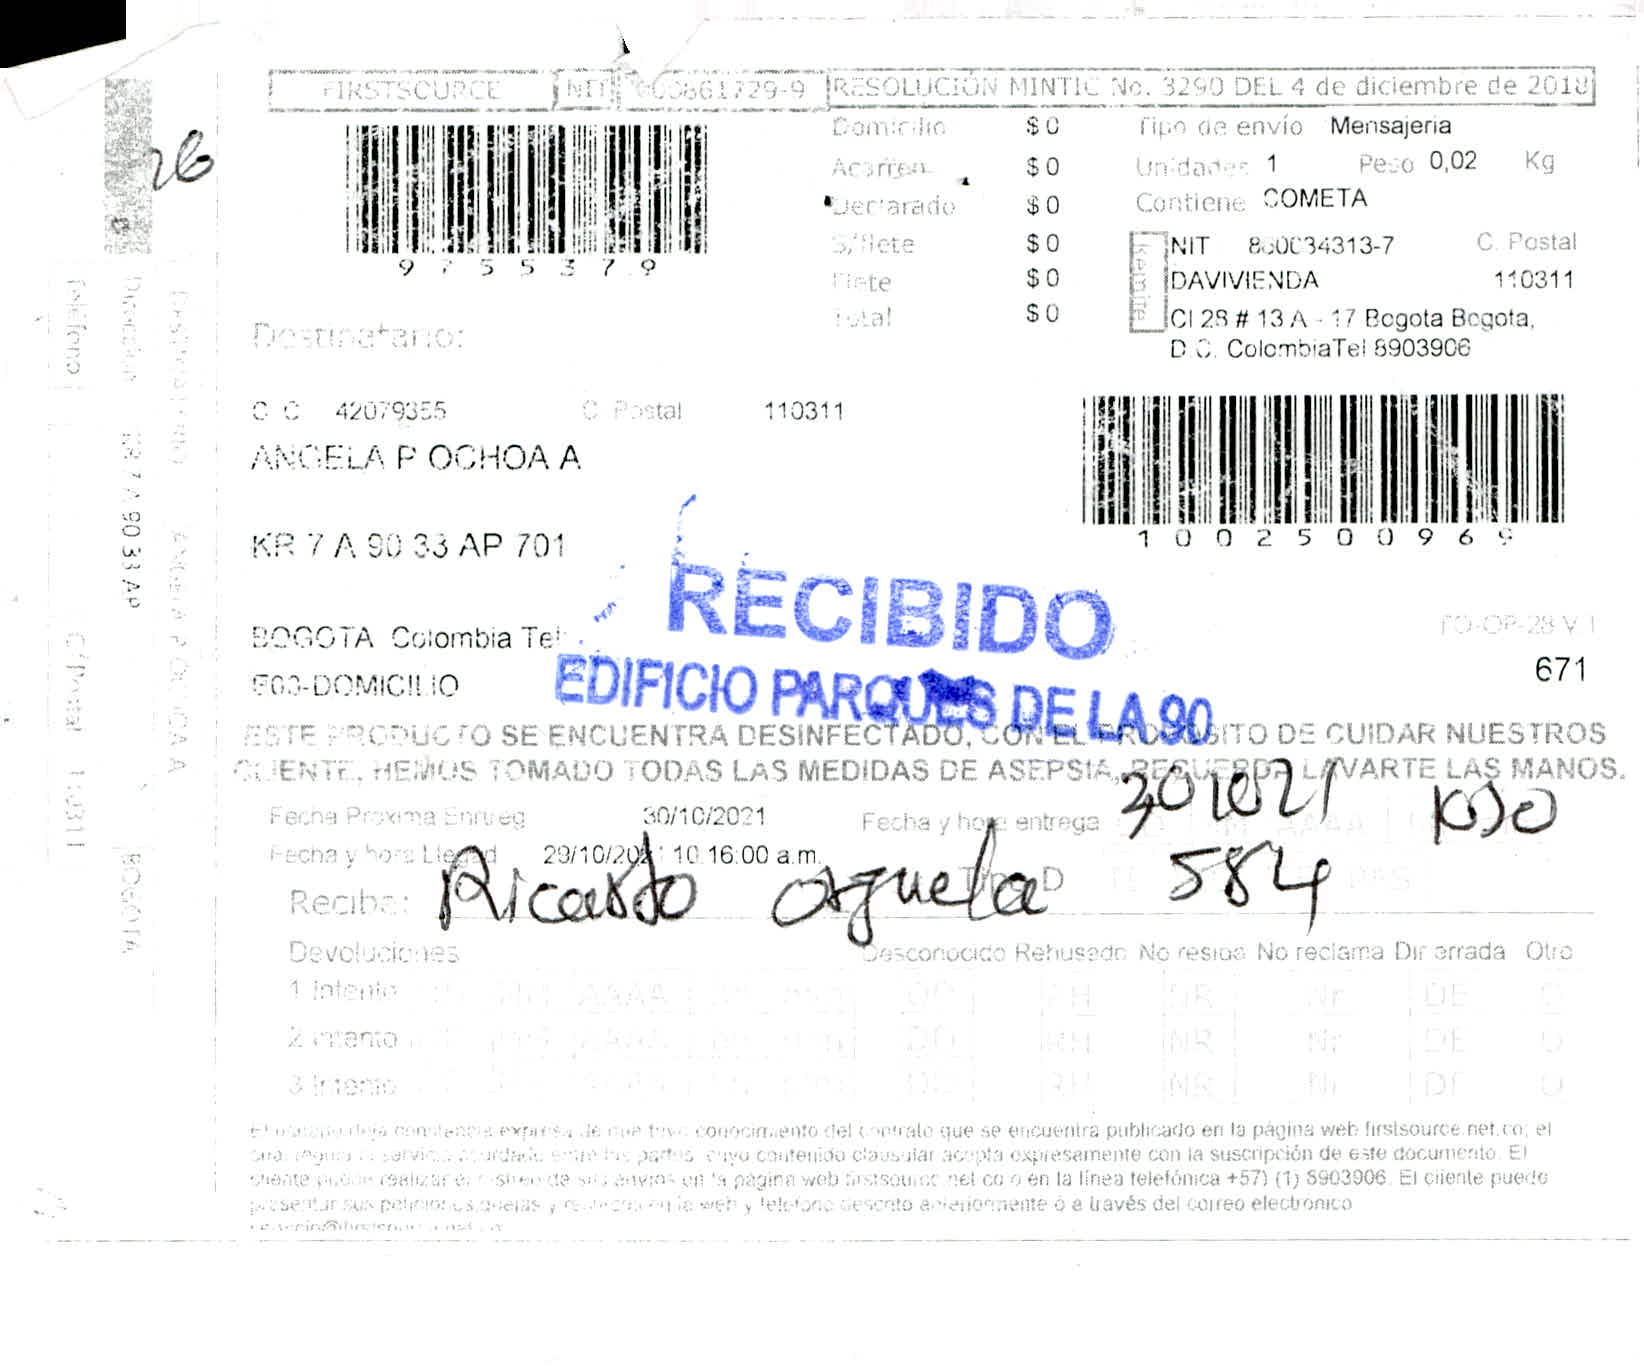 FIRSTSOURCE NIT 900861729-9 RESOLUCIÓN MINTIC No. 3290 DEL 4 de diciembre de 2018
26
9755379
Domicilio $0
Acarreo $0
Declarado $0
S/flete $0
Flete $0
Total $0
Tipo de envío Mensajeria
Unidades 1 Peso 0,02 Kg
Contiene COMETA
Remite
NIT 860034313-7 C. Postal
DAVIVIENDA 110311
Cl 28 # 13 A - 17 Bogota Bogota,
D.C. ColombiaTel 8903906
Destinatario:
C C 42079355 C Postal 110311
ANGELA P OCHOA A
KR 7 A 90 33 AP 701
BOGOTA Colombia Tel:
-DOMICILIO
1002500969
FO-OP-28 V 1
671
RECIBIDO
EDIFICIO PARQUES DE LA 90
ESTE PRODUCTO SE ENCUENTRA DESINFECTADO, CON EL PROPOSITO DE CUIDAR NUESTROS
CLIENTE, HEMOS TOMADO TODAS LAS MEDIDAS DE ASEPSIA, RECUERDA LAVARTE LAS MANOS.
Fecha Proxima Entreg 30/10/2021 Fecha y hora entrega 301021
Fecha y hora Llegad 29/10/2021 10:16:00 a.m.
Recibe: Ricardo 584
Devoluciones Desconocido Rehusado No reside No reclama Dir errada Otro
1 Intento AAAA DD RH NR Nr DE O
2 Intento DD RH NR Nr DE O
3 Intento DD RH NR Nr DE O
El usuario deja constancia expresa de que tuvo conocimiento del contrato que se encuentra publicado en la página web firstsource.net.co, el
cual regula el servicio acordado entre las partes, cuyo contenido clausular acepta expresamente con la suscripción de este documento. El
cliente puede realizar el rastreo de sus envios en la página web firstsource.net.co o en la línea telefónica +57) (1) 8903906. El cliente puede
presentar sus peticiones, quejas y reclamos en la web y telefono descrito anteriormente ó a través del correo electronico
Destinatario ANGELA P OCHOA A
Dirección KR 7 A 90 33 AP BOGOTA
Teléfono C Postal 110311